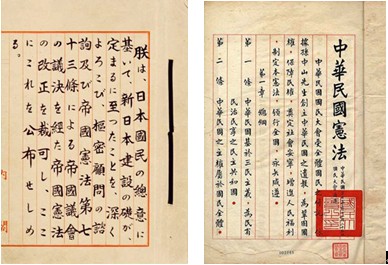 朕は、日本國民の總意に
基いて、新日本建設の礎が、
定まるに至つたことを、深く
よろこび、樞密顧問の諮
詢及び帝國憲法第七
十三條による帝國議會
の議決を經た帝國憲法
の改正を裁可し、ここ
にこれを公布せしめ
る。
内閣
中華民國憲法
中華民國
中華民國國民大會受全體國民之付託，依
據孫中山先生創立中華民國之遺教，為鞏固國
權，保障民權，奠定社會安寧，增進人民福利
，制定本憲法，頒行全國，永矢咸遵。
第一章 總綱
第一條 中華民國基於三民主義，為民有
民治民享之民主共和國。
第二條 中華民國之主權屬於國民全體。